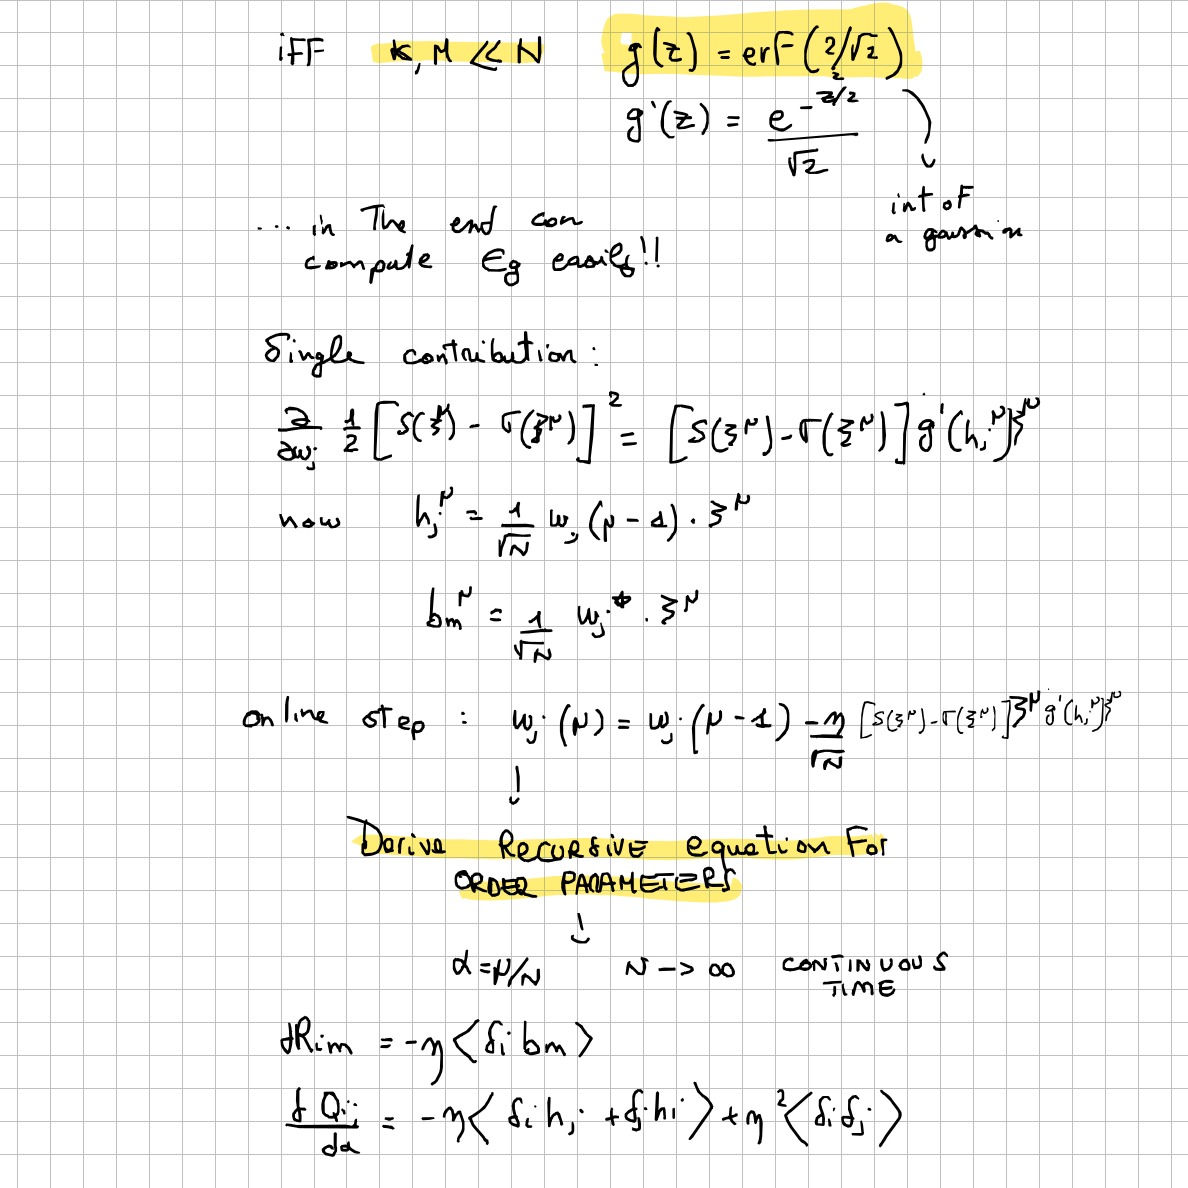 iFF K, M << N g(z) = erF(z/√2)
g'(z) = e^{-z²/2} / √2
int of
a gaussian
... in The end can
compute Eg easily!!
Single contribution:
∂/∂wj 1/2 [S(ξ^μ) - σ(ξ^μ)]² = [S(ξ^μ) - σ(ξ^μ)] g'(hj^μ) ξ^μ
now hj^μ = 1/√N wj(μ-1) · ξ^μ
bm^μ = 1/√N wj* · ξ^μ
online step: wj(μ) = wj(μ-1) - η/√N [S(ξ^μ) - σ(ξ^μ)] ξ^μ g'(hj^μ) ξ^μ
↓
Derive RECURSIVE equation For
ORDER PARAMETERS
↓
α = μ/N N -> ∞ CONTINUOUS
TIME
dRim = -η <δi bm>
dQij/dα = -η <δi hj + δj hi> + η² <δi δj>